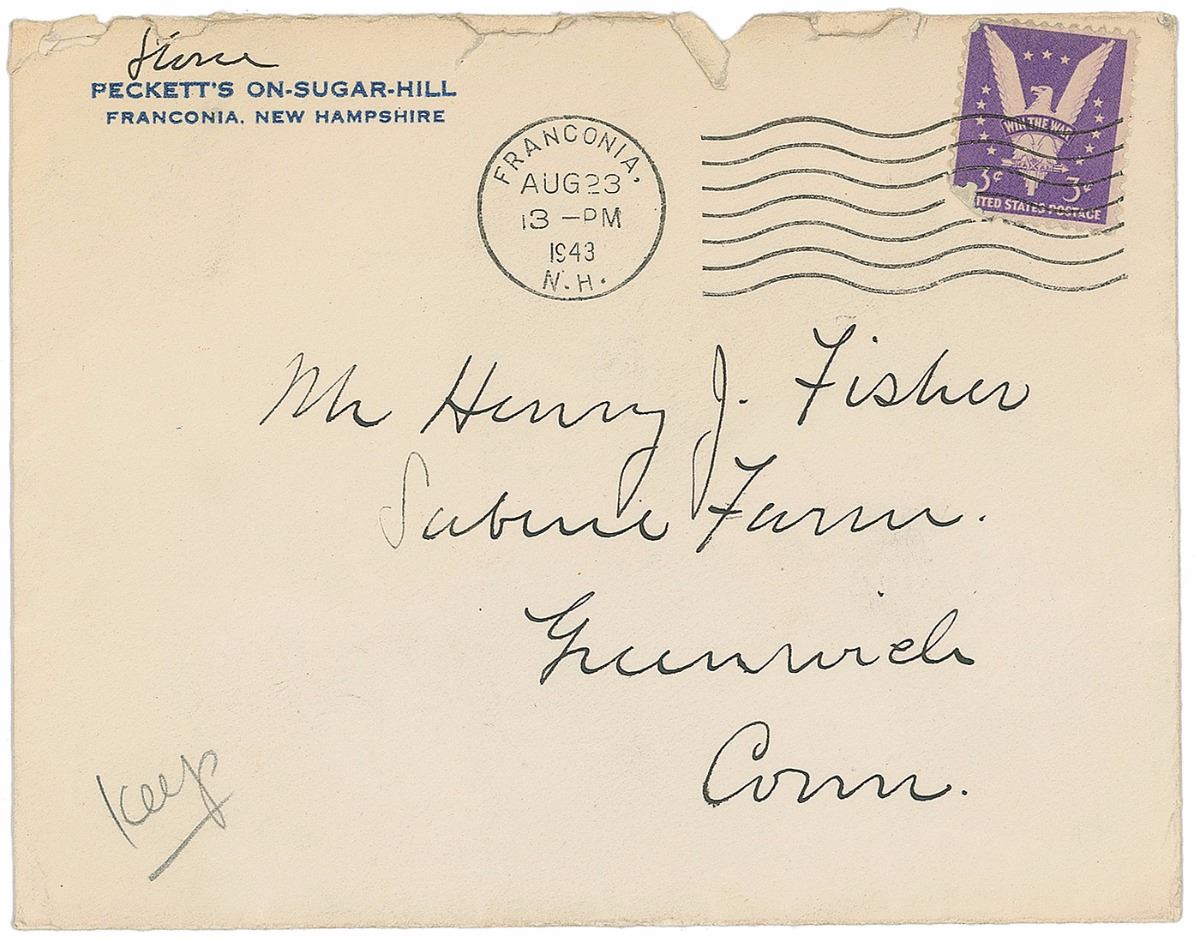 Stone
PECKETT'S ON-SUGAR-HILL
FRANCONIA, NEW HAMPSHIRE
FRANCONIA,
AUG 23
13 -PM
1943
N.H.
WIN THE WAR
3¢ 3¢
ITED STATES POSTAGE
Mr Henry J. Fisher
Sabine Farm.
Greenwich
Conn.
Keep